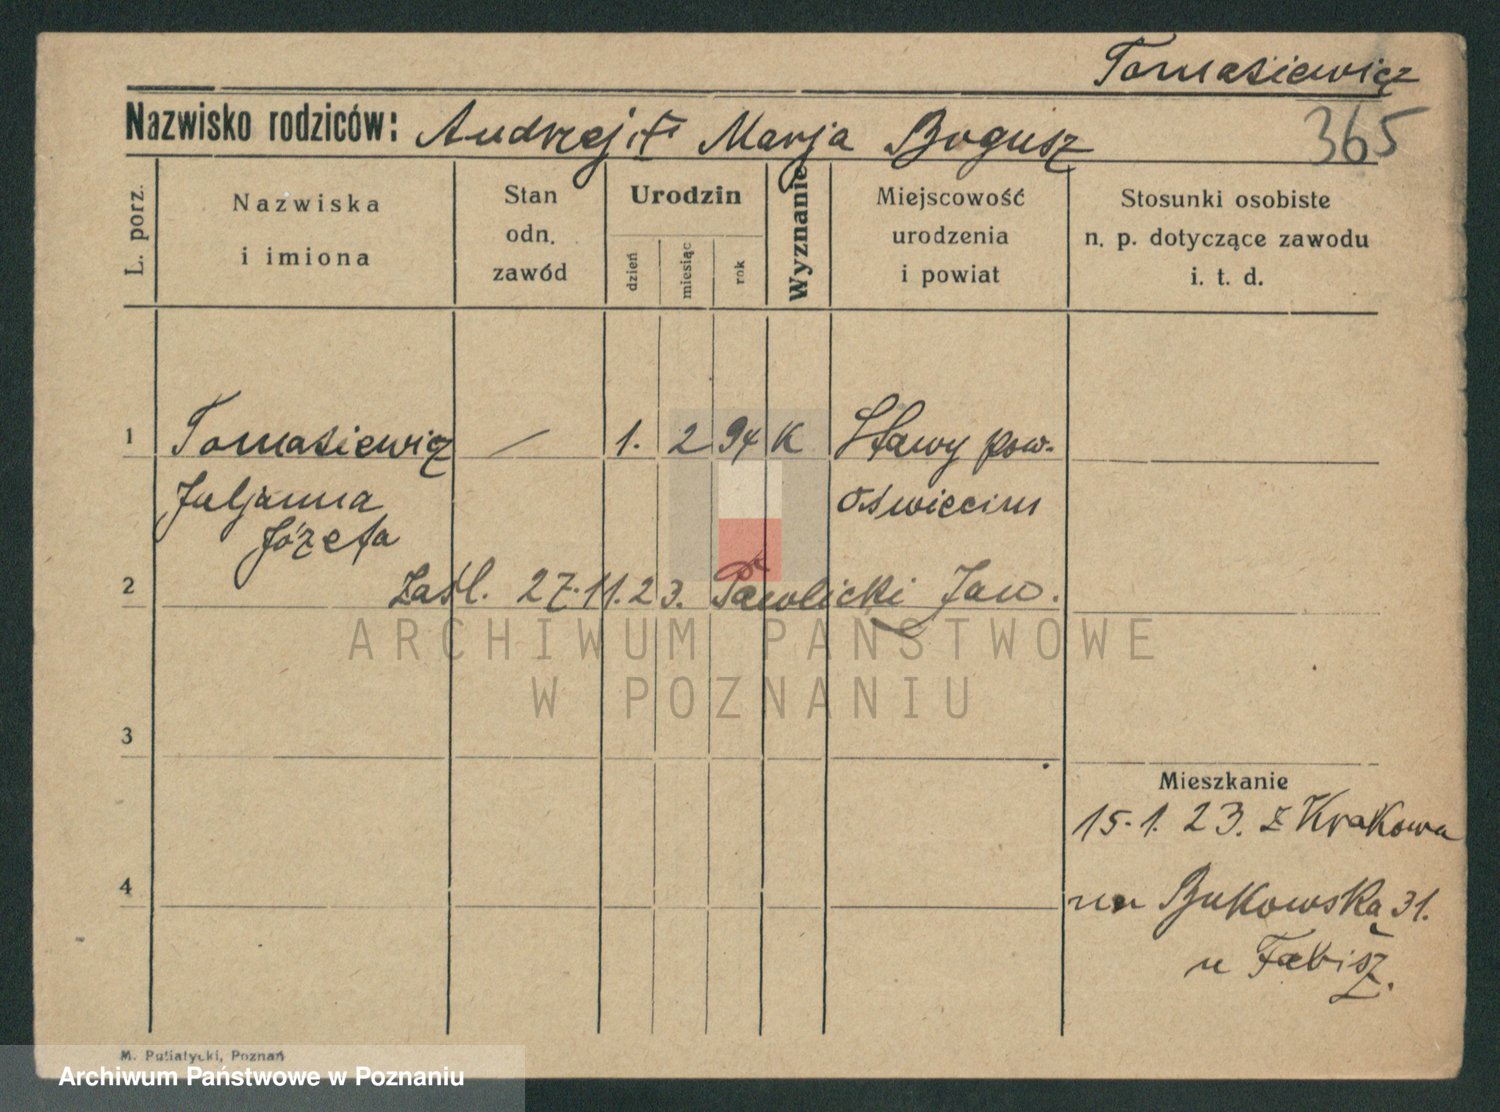 Tomasiewicz
Nazwisko rodziców: Andrzej i Marja Bogusz
365
L. porz.
Nazwiska
i imiona
Stan
odn.
zawód
Urodzin
dzień
miesiąc
rok
Wyznanie
Miejscowość
urodzenia
i powiat
Stosunki osobiste
n. p. dotyczące zawodu
i. t. d.
1 Tomasiewicz — 1. 2 94 K Stawy pow.
Juljanna oświecim
Józefa
2 Zaśl. 27.11.23. Pawlicki Jan.
ARCHIWUM PAŃSTWOWE
W POZNANIU
3
Mieszkanie
15.1.23. z Krakowa
4
na Bukowską 31.
u Fabisz.
M. Putiatycki, Poznań
Archiwum Państwowe w Poznaniu